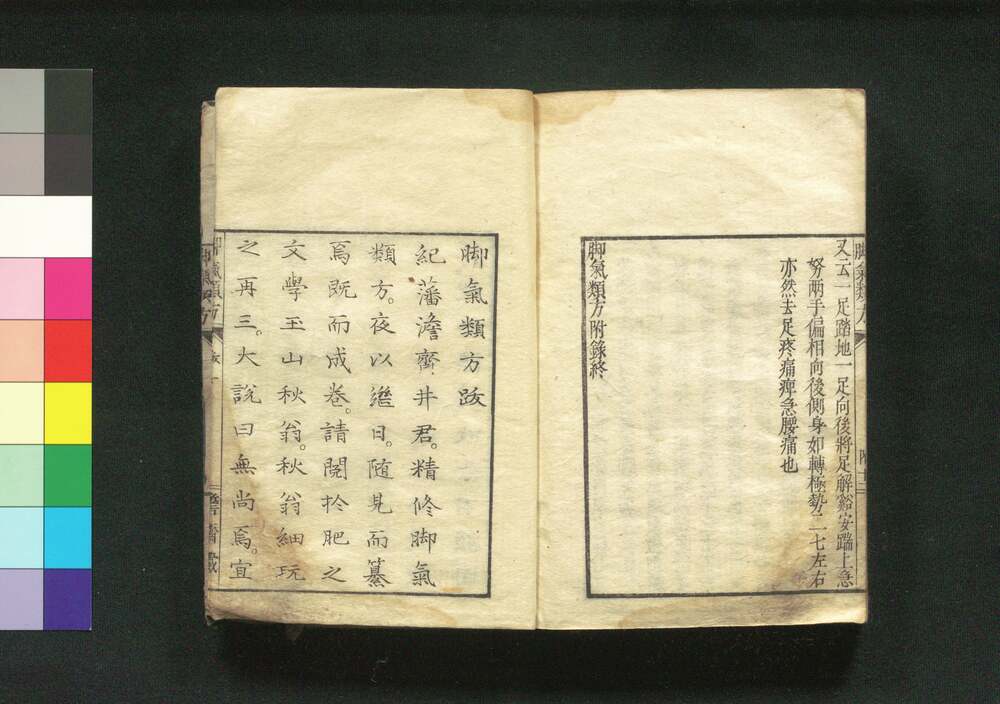 又云一足踏地一足向後將足解谿安踹上急
努兩手偏相向後側身如轉極勢二七左右
亦然去足疼痛痺急腰痛也
脚氣類方附錄終
脚氣類方跋
紀藩澹齋井君。精修脚氣
類方。夜以繼日。隨見而纂
焉既而成卷。請閱於肥之
文學玉山秋翁。秋翁細玩
之再三。大說曰無尚焉。宜